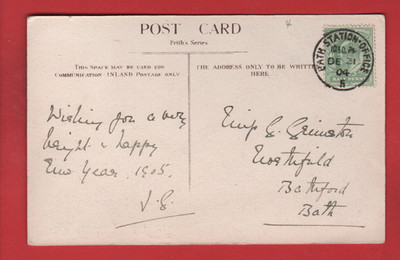 POST CARD
Frith's Series
THIS SPACE MAY BE USED FOR
COMMUNICATION INLAND POSTAGE ONLY
THE ADDRESS ONLY TO BE WRITTEN
HERE
BATH STATION OFFICE
DE 31
04
Wishing you a very
bright & happy
New Year. 1905.
Miss G.
Bathford
Bath